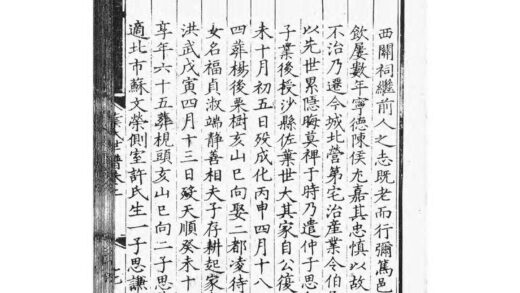 西關祠繼前人之志既老而行彌篤邑
飲屢數年寧德陳侯尤嘉其忠慎以故
不治乃遷今城北營第宅治產業令伯
以先世累隱晦莫裨于時乃遣仲子思
子業後授沙縣佐葉世大其家自公復
未十月初五日歿成化丙申四月十八
四葬楊後栗樹亥山巳向娶二都凌待
女名福貞淑端靜善相夫子存耕起家
洪武戊寅四月十三日歿天順癸未十
享年六十五葬梘頭亥山巳向二子思
適北市蘇文榮側室許氏生一子思謙
氏世譜卷